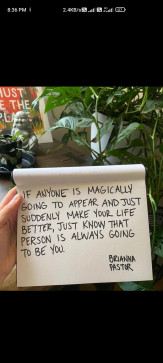 8:36 PM
2.4KB/s
UST
E THE
PLA
IF ANYONE IS MAGICALLY
GOING TO APPEAR AND JUST
SUDDENLY MAKE YOUR LIFE
BETTER, JUST KNOW THAT
PERSON IS ALWAYS GOING
TO BE YOU.
BRIANNA
PASTOR